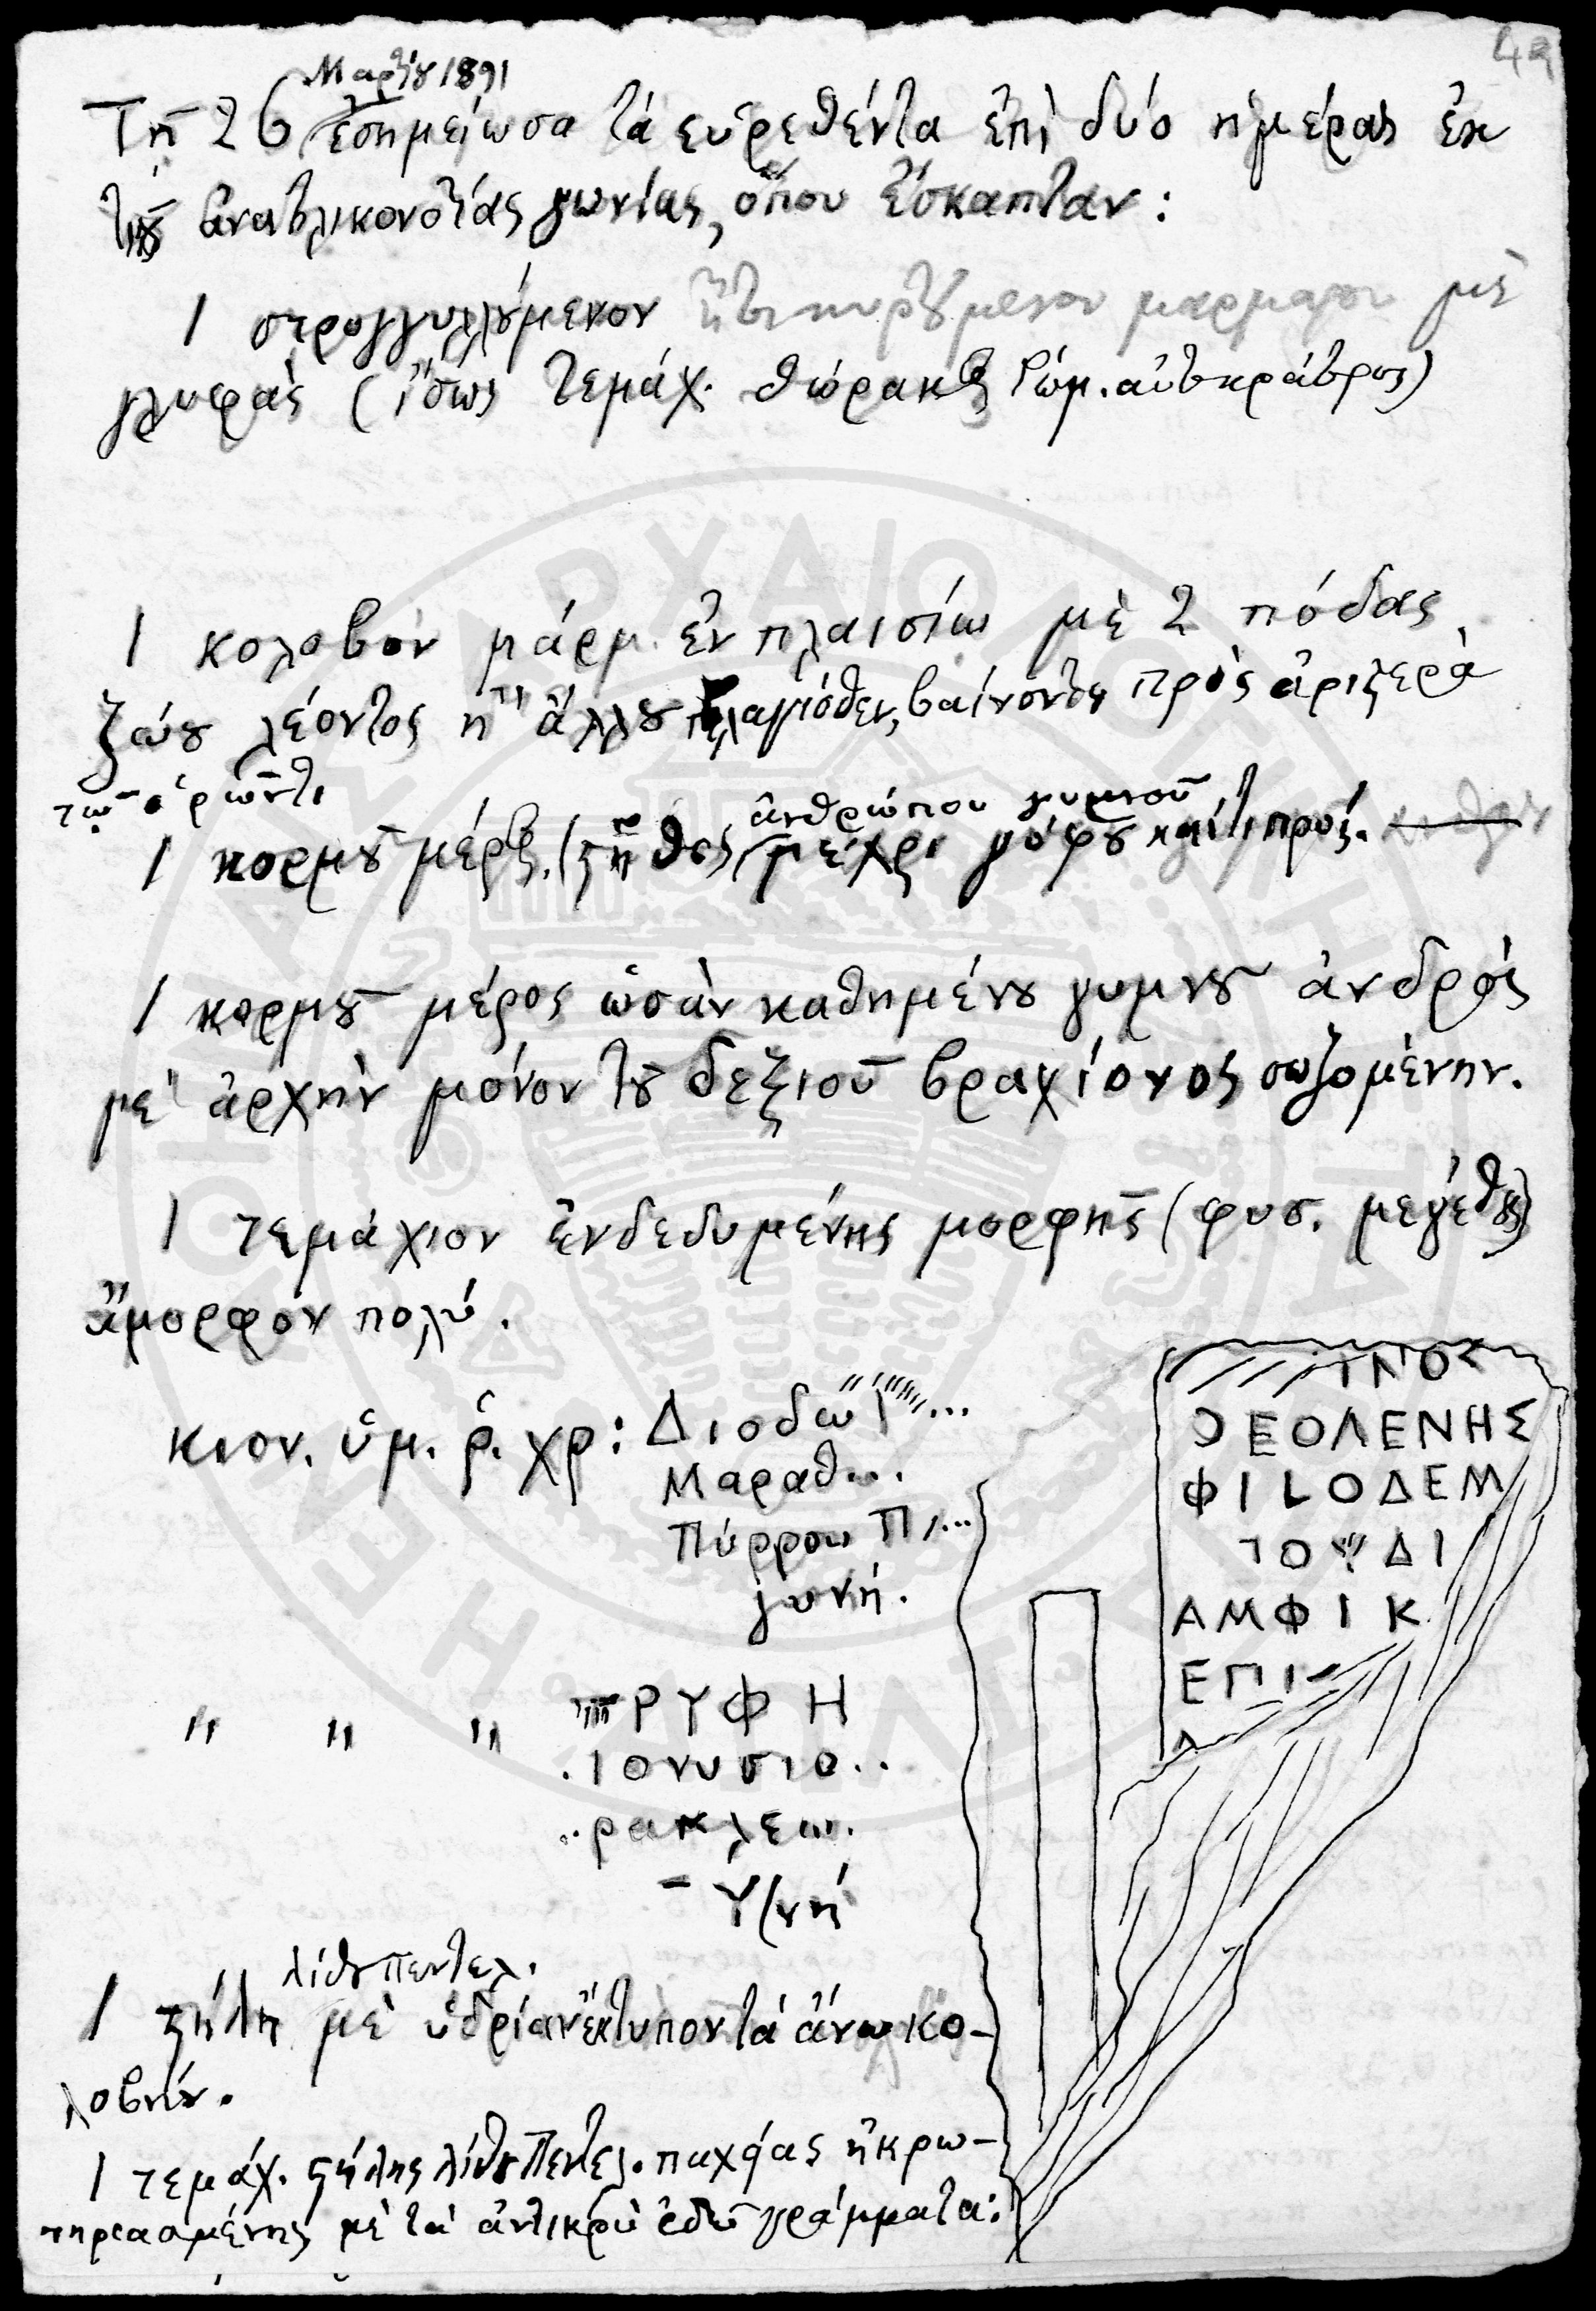 42
Μαρτίου 1891
Τῇ 26 ἐσημείωσα τὰ εὑρεθέντα ἐπὶ δύο ἡμέρας ἐκ
τῆς ἀνατολικονοτίας γωνίας, ὅπου ἔσκαπταν:
1 στρογγυλλούμενον ἤτοι κυρτούμενον μάρμαρον μὲ
γλυφὰς (ἴσως τεμάχ. θώρακος Ῥωμ. αὐτοκράτορος)
1 κολοβὸν μάρμ. ἐν πλαισίῳ μὲ 2 πόδας
ζώου λέοντος ἤ τι ἄλλου πλαγιόθεν, βαίνοντος πρὸς ἀριστερὰ
τῷ ὁρῶντι
1 κορμοῦ μέρος (στῆθος ἀνθρώπου γυμνοῦ μέχρι γόφου καί τι πρός.
1 κορμοῦ μέρος ὡσὰν καθημένου γυμνοῦ ἀνδρὸς
μὲ ἀρχὴν μόνον τοῦ δεξιοῦ βραχίονος σωζομένην.
1 τεμάχιον ἐνδεδυμένης μορφῆς (φυσ. μεγέθους)
ἄμορφον πολύ.
κιον. ὑμ. ῥ. χρ: Διοδω...
Μαραθω.
Πύρρου Πι...
γυνή.
" " " ΡΥΦΗ
.ιονυσιο..
..ρακλεω.
– Υ(νή
1 στήλη λίθου Πεντελ. μὲ ὑδρίαν ἔκτυπον τὰ ἄνω κο-
λοβήν.
1 τεμάχ. στήλης λίθου Πεντελ. παχείας ἠκρω-
τηριασμένης μὲ τὰ ἀντικρὺ ἐδῶ γράμματα:
ΙΝΟΣ
ΟΕΟΛΕΝΗΣ
ΦΙLΟΔΕΜ
ΤΟΥΔΙ
ΑΜΦΙΚ
ΕΠΙ
Λ